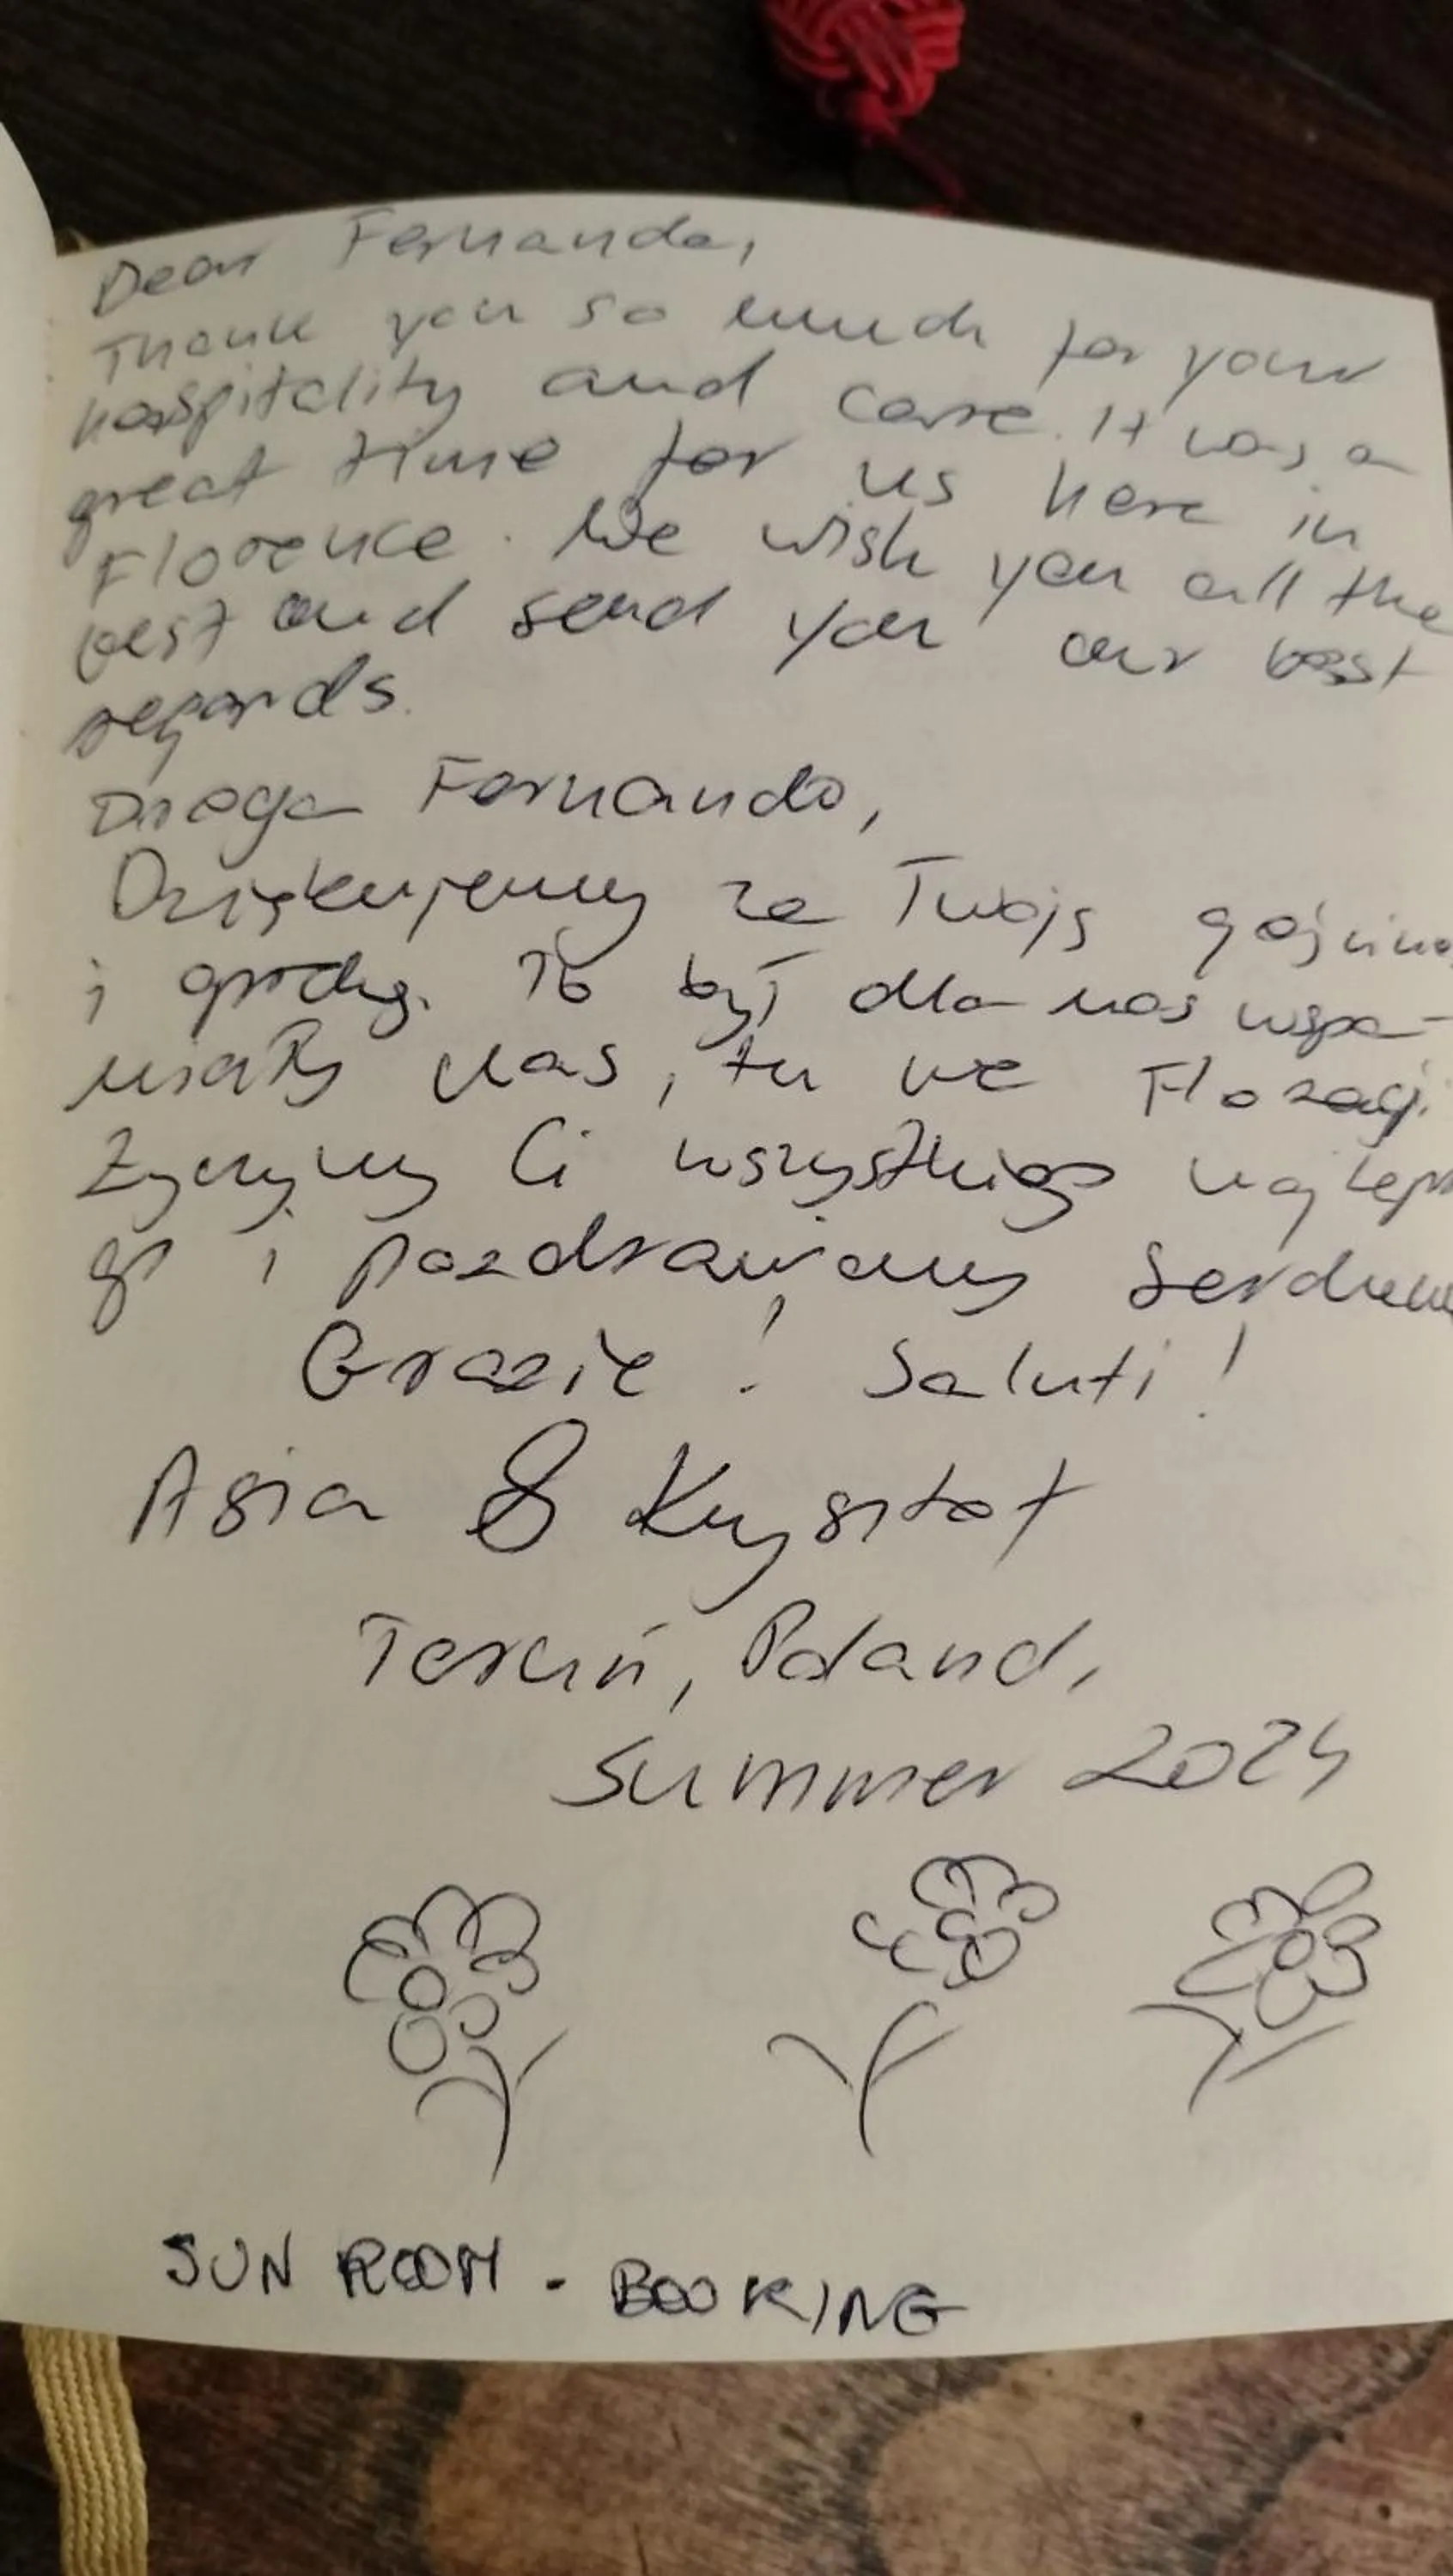 Dear Fernanda,
Thank you so much for your
hospitality and care. It was a
great time for us here in
Florence. We wish you all the
best and send you our best
regards.
Droga Fernando,
Dziękujemy za Twoją gościnno
i To był dla nas wspa-
niały czas, tu we Florencji.
Życzymy Ci wszystkiego najleps
go i pozdrawiamy serdeczn
Grazie! Saluti!
Asia & Krysztof
Toruń, Poland,
Summer 2024
SUN ROOM - BOOKING